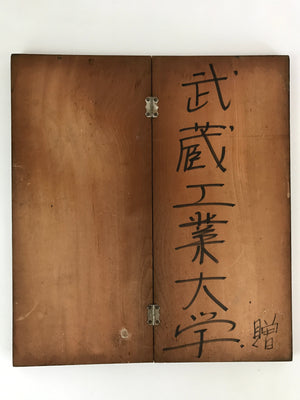 武蔵工業大学
贈